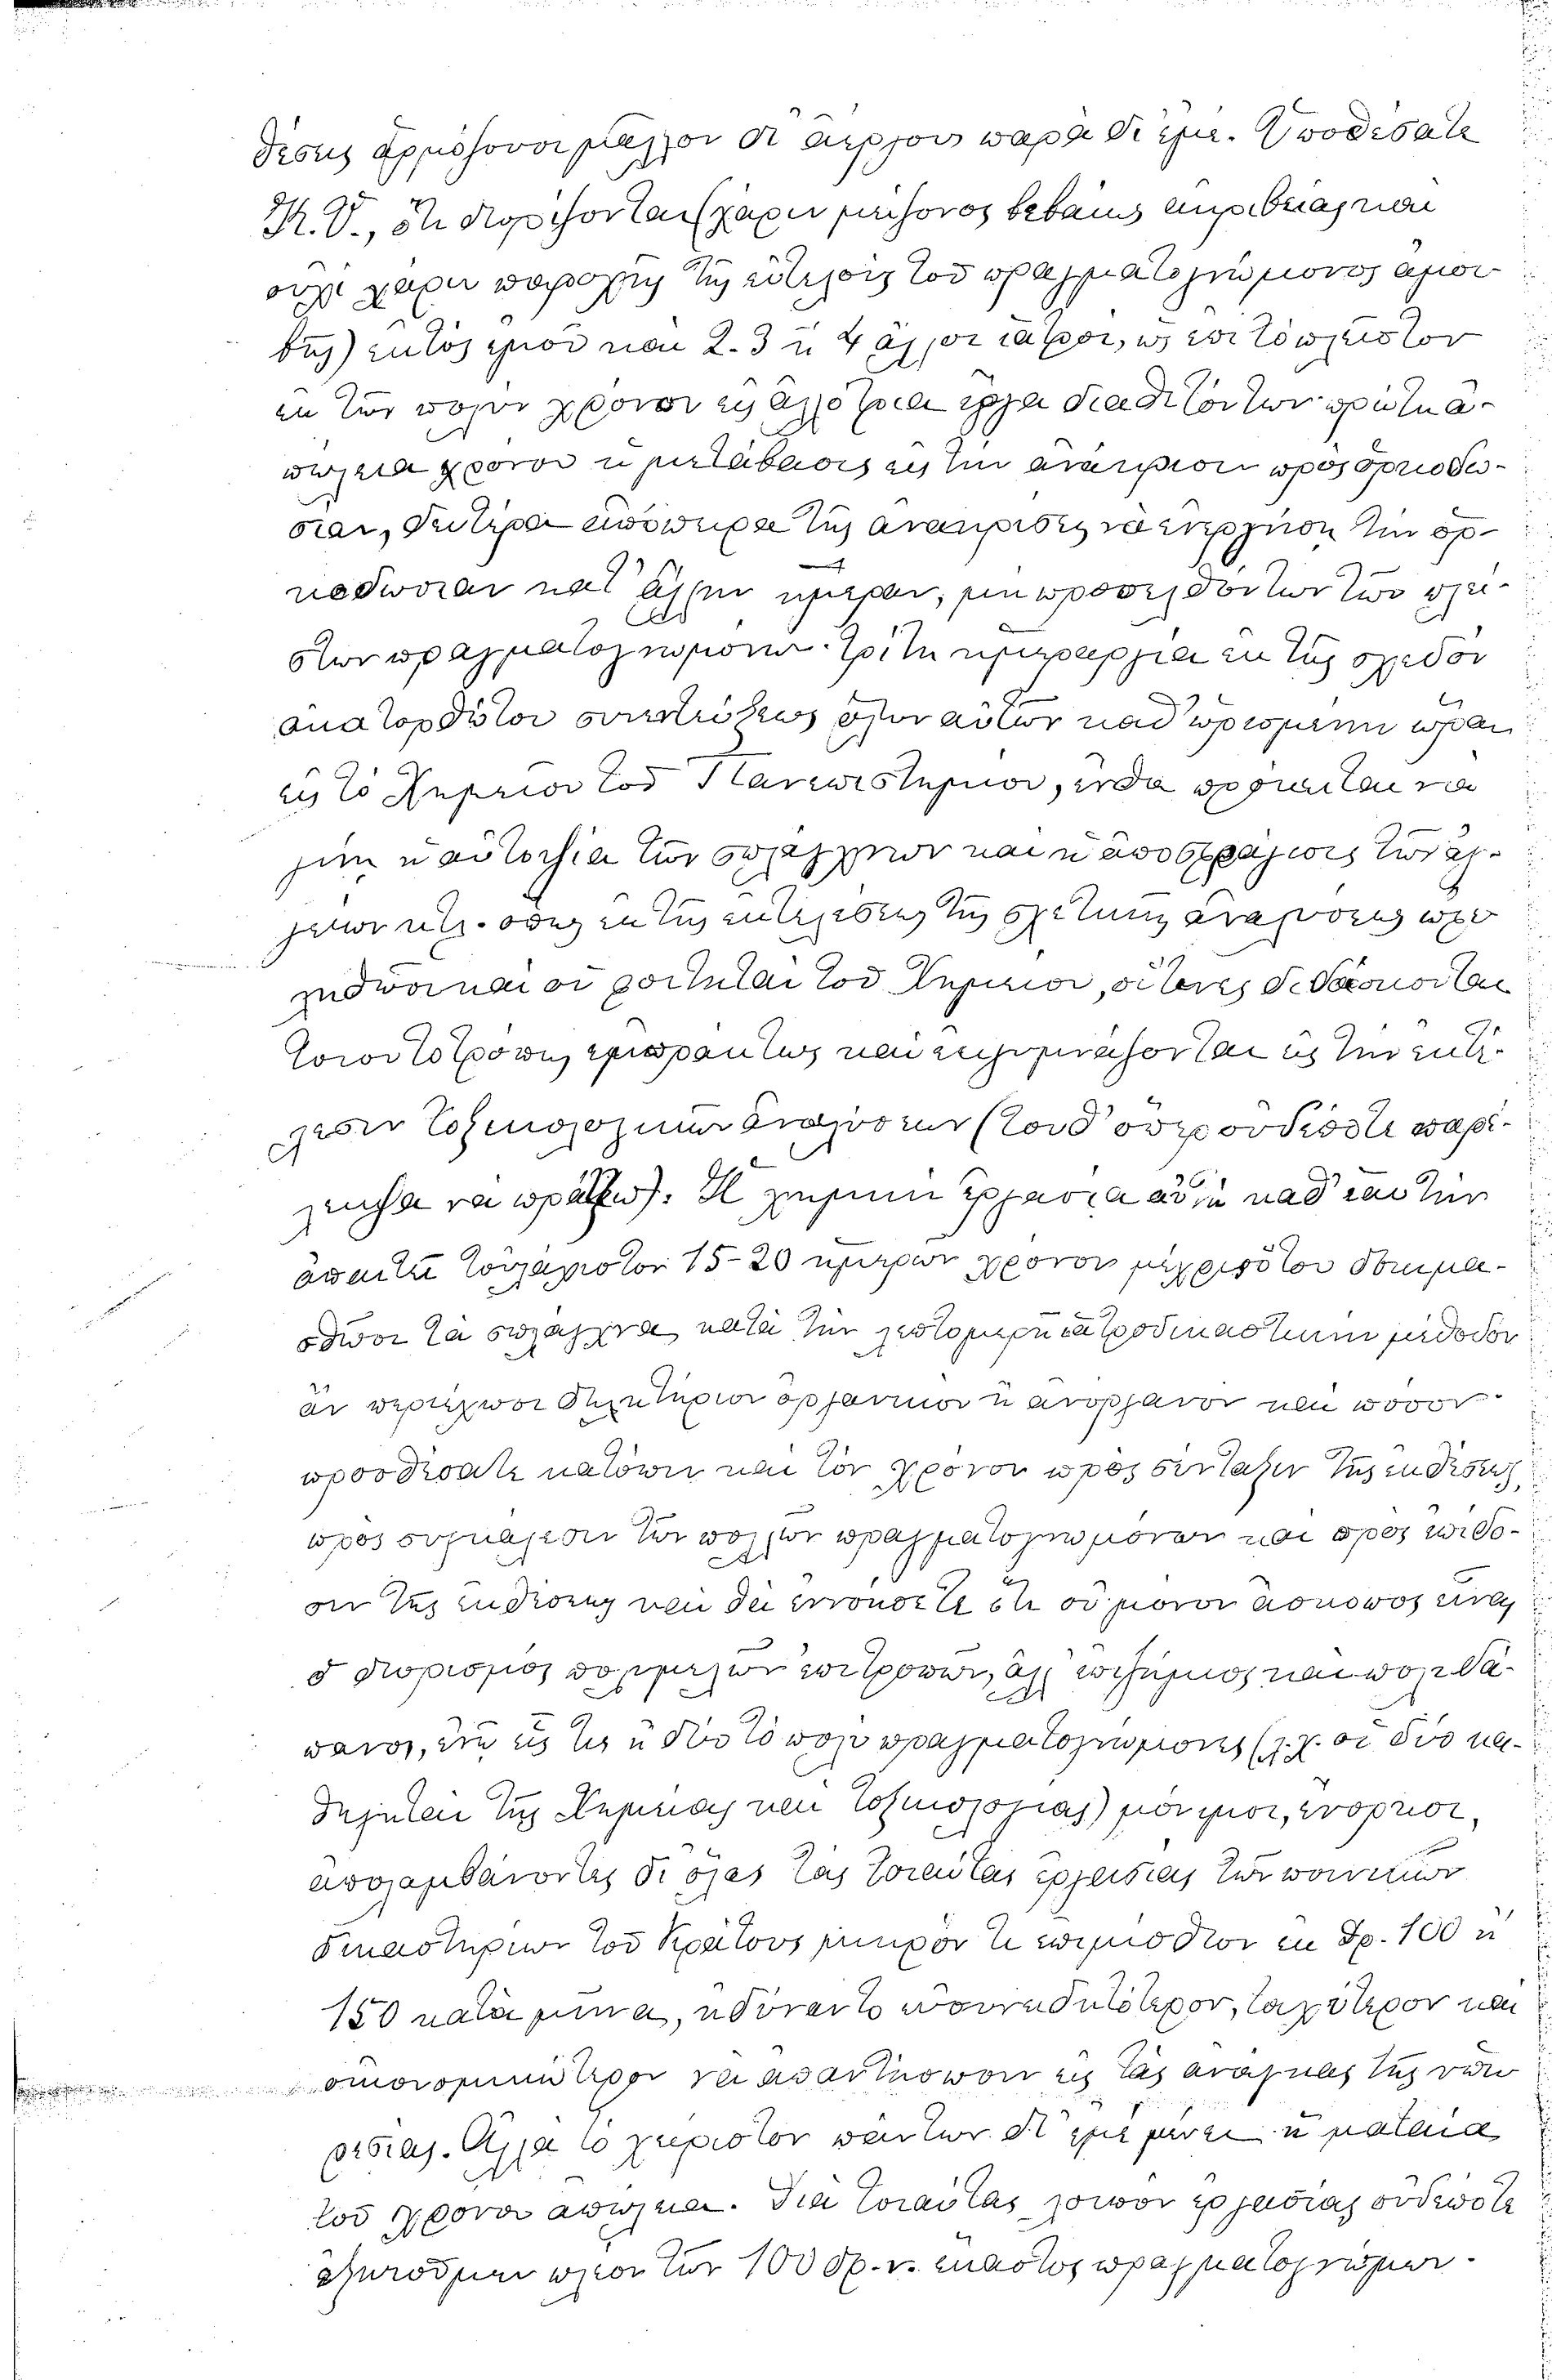 θέσεις ἁρμόζουσι μᾶλλον δι' ἀέργους παρὰ δι' ἐμέ. Ὑποθέσατε
Κ. Υ., ὅτι διορίζονται (χάριν μείζονος βεβαίως ἀκριβείας καὶ
οὐχὶ χάριν παροχῆς τῆς εὐτελοῦς τοῦ πραγματογνώμονος ἀμοι-
βῆς) ἐκτὸς ἐμοῦ καὶ 2-3 ἢ 4 ἄλλοι ἰατροί, ὡς ἐπὶ τὸ πλεῖστον
ἐκ τῶν πολὺν χρόνον εἰς ἀλλότρια ἔργα διαθετόντων· πρώτη ἀ-
πώλεια χρόνου ἡ μετάβασις εἰς τὴν ἀνάκρισιν πρὸς ὁρκοδο-
σίαν, δευτέρα ἀπόπειρα τῆς ἀνακρίσεως νὰ ἐνεργήσῃ τὴν ὁρ-
κοδωσίαν κατ' ἄλλην ἡμέραν, μὴ προσελθόντων τῶν πλεί-
στων πραγματογνωμόνων· τρίτη ἡμεραργία ἐκ τῆς σχεδὸν
ἀκατορθώτου συνεντεύξεως ὅλων αὐτῶν καθ' ὡρισμένην ὥραν
εἰς τὸ Χημεῖον τοῦ Πανεπιστημίου, ἔνθα πρόκειται νὰ
γίνῃ ἡ αὐτοψία τῶν σπλάγχνων καὶ ἡ ἀποσφράγισις τῶν ἀγ-
γείων κτλ. οὕτως ἐκ τῆς ἐκτελέσεως τῆς σχετικῆς ἀναλύσεως ὠφε
ληθῶσι καὶ οἱ φοιτηταὶ τοῦ Χημείου, οἵτινες διδάσκονται
τοιουτοτρόπως ἐμπράκτως καὶ ἐκγυμνάζονται εἰς τὴν ἐκτέ-
λεσιν τοξικολογικῶν ἀναλύσεων (τοῦθ' ὅπερ οὐδέποτε παρέ-
λειψα νὰ πράξω). Ἡ χημικὴ ἐργασία αὕτη καθ' ἑαυτὴν
ἀπαιτεῖ τοὐλάχιστον 15-20 ἡμερῶν χρόνον μέχρις ὅτου δοκιμα-
σθῶσι τὰ σπλάγχνα κατὰ τὴν λεπτομερῆ ἰατροδικαστικὴν μέθοδον
ἂν περιέχωσι δηλητήριον ὀργανικὸν ἢ ἀνόργανον καὶ πόσον·
προσθέσατε κατόπιν καὶ τὸν χρόνον πρὸς σύνταξιν τῆς ἐκθέσεως,
πρὸς σύγκλησιν τῶν πολλῶν πραγματογνωμόνων καὶ πρὸς ἐπίδο-
σιν τῆς ἐκθέσεως καὶ θὰ ἐννοήσετε ὅτι οὐ μόνον ἄσκοπος εἶναι
ὁ διορισμὸς πολυμελῶν ἐπιτροπῶν, ἀλλ' ἐπιζήμιος καὶ πολυδά-
πανος, ἐνῷ εἷς τις ἢ δύο τὸ πολὺ πραγματογνώμονες (λ.χ. οἱ δύο κα-
θηγηταὶ τῆς Χημείας καὶ Τοξικολογίας) μόνιμοι, ἔνορκοι,
ἀπολαμβάνοντες δι' ὅλας τὰς τοιαύτας ἐργασίας τῶν ποινικῶν
δικαστηρίων τοῦ Κράτους μικρόν τι ἐπιμίσθιον ἐκ δρ. 100 ἢ
150 κατὰ μῆνα, ἠδύναντο ἐπουσιωδέστερον, ταχύτερον καὶ
οἰκονομικώτερον νὰ ἀπαντήσωσιν εἰς τὰς ἀνάγκας τῆς ὑπη
ρεσίας. Ἀλλὰ τὸ χείριστον πάντων δι' ἐμὲ μένει ἡ ματαία
τοῦ χρόνου ἀπώλεια. Διὰ τοιαύτας λοιπὸν ἐργασίας οὐδέποτε
ἠξιώθημεν πλέον τῶν 100 δρ. ν. ἕκαστος πραγματογνώμων.